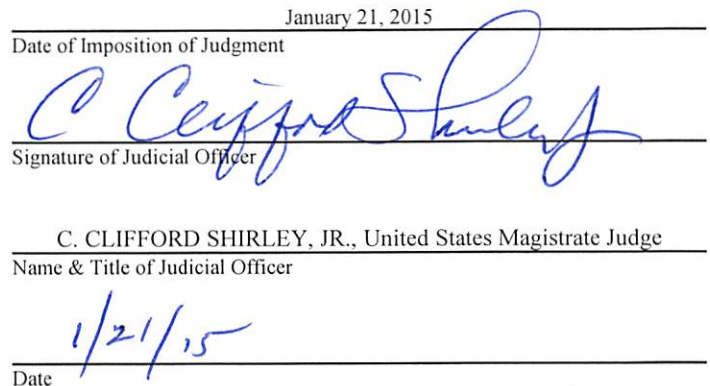 January 21, 2015
Date of Imposition of Judgment
C Clifford Shirley Jr
Signature of Judicial Officer
C. CLIFFORD SHIRLEY, JR., United States Magistrate Judge
Name & Title of Judicial Officer
1/21/15
Date